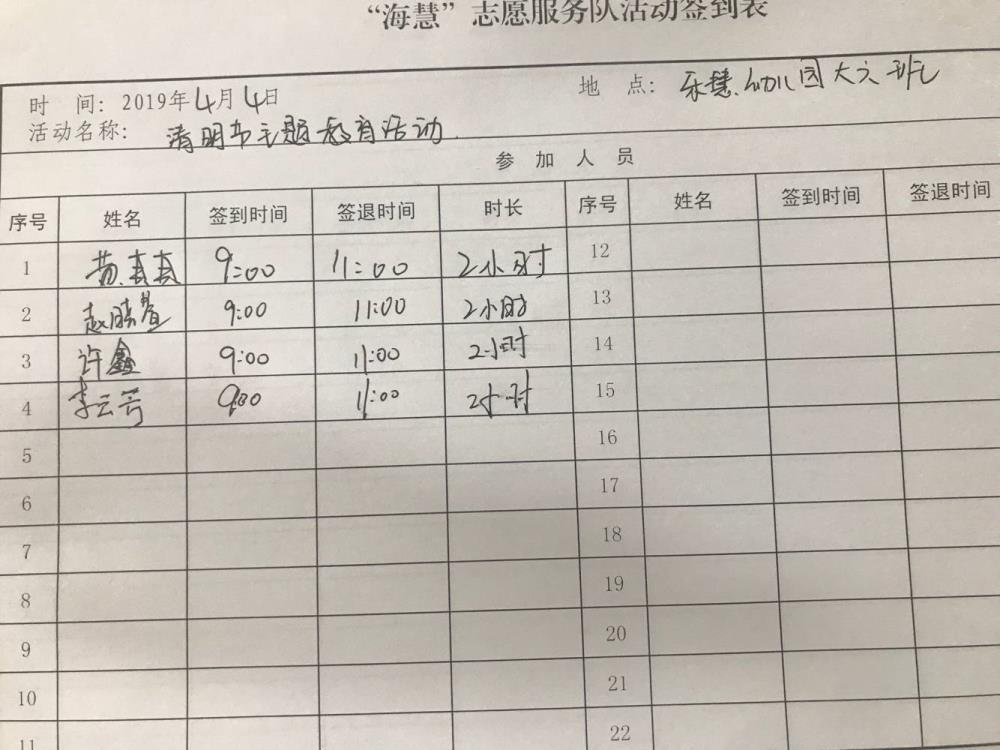 “海慧”志愿服务队活动签到表
时 间: 2019年4月4日 地 点: 乐慧幼儿园大六班
活动名称: 清明节主题教育活动.
参 加 人 员
序号 姓名 签到时间 签退时间 时长 序号 姓名 签到时间 签退时间
1 9:00 11:00 2小时 12
2 赵晓萱 9:00 11:00 2小时 13
3 许鑫 9:00 11:00 2小时 14
4 李云 9:00 11:00 2小时 15
5 16
6 17
7 18
8 19
9 20
10 21
11 22